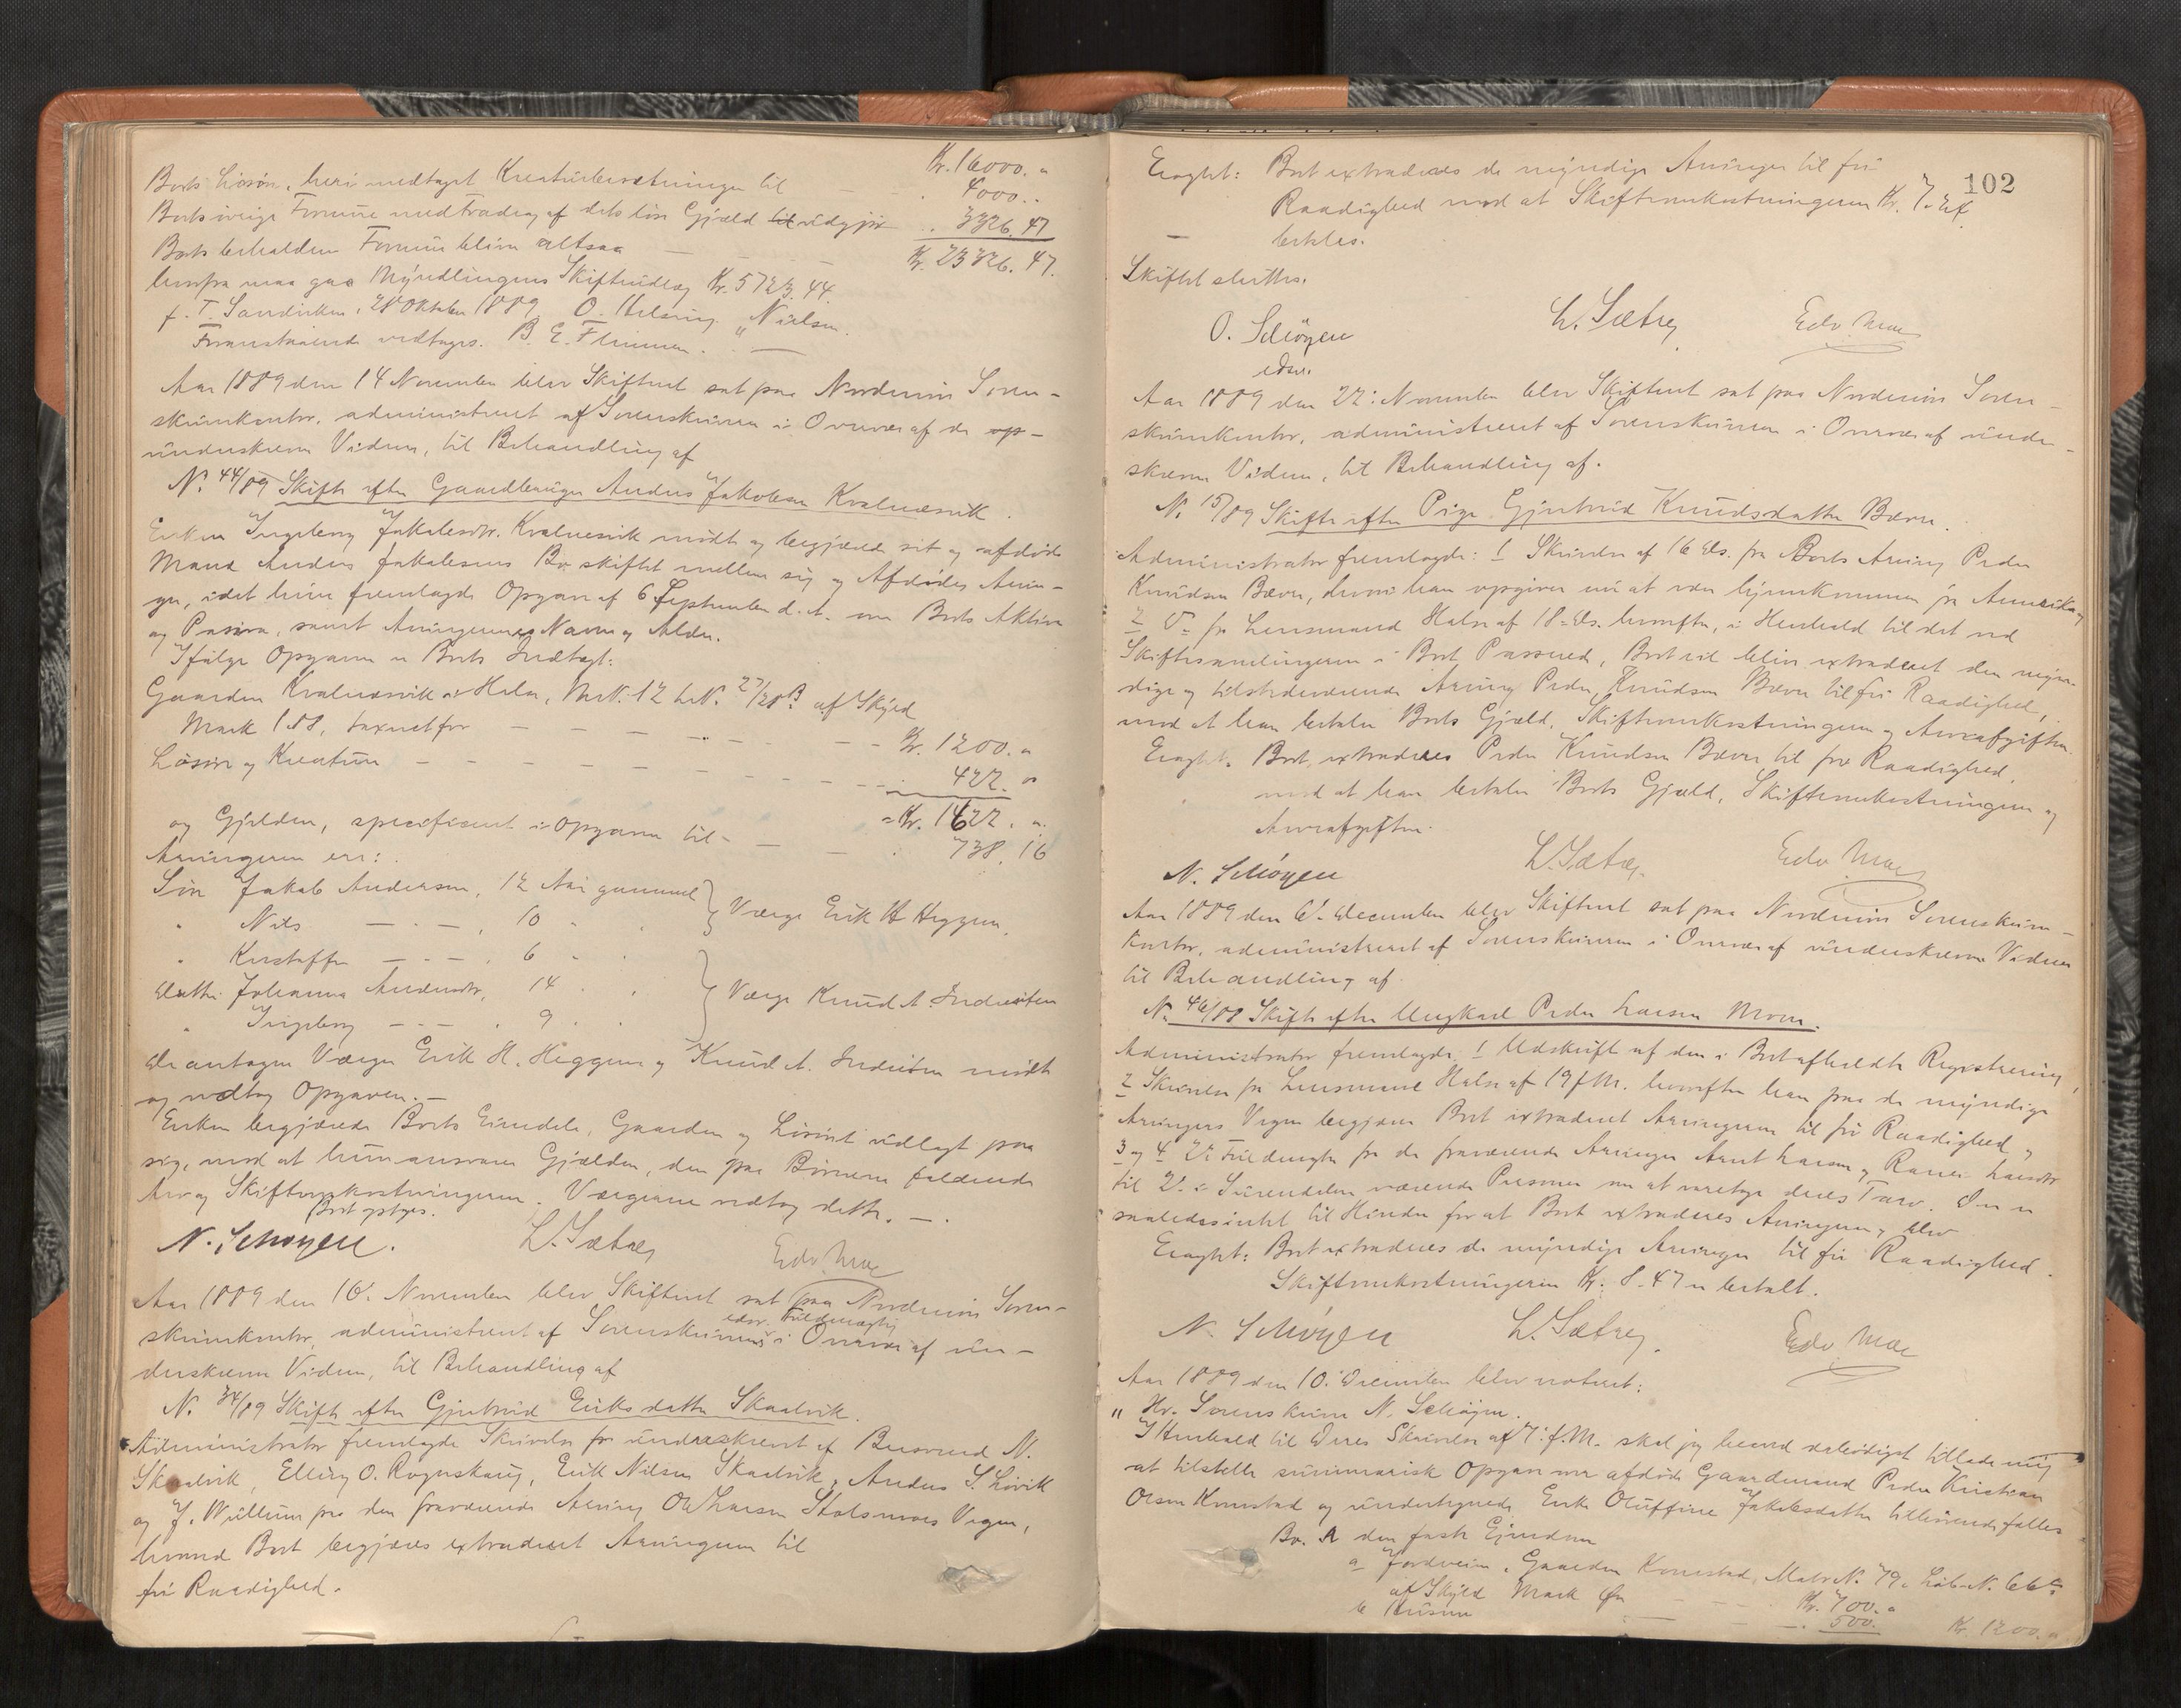 Kr. 16000. "
Boets Løsøre, heri medtaget Kreaturbesætningen til — — . 4000. "
Boets øvrige Formue med Fradrag af dets løse Gjæld til udgjør . . 3326. 47
Boets beholdne Formue bliver altsaa — — — Kr. 23326. 47.
herfra maa gaa Myndlingens Skifteudlæg Kr. 5723. 44.
p. T. Sandviken, 28 Oktober 1889 O. Nielsen.
Foranstaaende vedtages. B. E. Flemmen. —
Aar 1889 den 14 November blev Skifteret sat paa Nordmør Soren-
skriverkontor, administreret af Sorenskriveren i Overvær af de op-
underskrevne Vidner, til Behandling af
No. 44/89 Skifte efter Gaardbruger Anders Jakobsen Kvalnesvik.
Enken Ingeborg Jakobsdtr. Kvalnesvik mødte og begjærede sit og afdøde
Mand Anders Jakobsens Bo skiftet mellem sig og Afdødes Arvin-
ger, idet hun fremlagde Opgave af 6 September d. A. over Boets Aktiva
og Passiva, samt Arvingernes Navne og Alder.
Ifølge Opgaven er Boets Indtægt:
Gaarden Kvalnesvik i Halse, Mt. N. 12 L. N. 27/28 B. af Skyld
Mark 1.88, taxeret for — — — — — — Kr. 1200. "
Løsøre og Kreature — — — — — — — — — . 422. "
Kr. 1622. "
og Gjælden, specificeret i Opgaven til — — — — . 738. 16
Arvingerne ere:
Søn Jakob Andersen, 12 Aar gammel
" Nils — " —, 10 " " Værge Erik H Heggem.
" Kristoffer — " —, 6 " "
Datter Johanna Andersdtr, 14 " " Værge Knud A. Indreiten
" Ingeborg — " —, 9 " "
De antagne Værger Erik H. Heggem og Knud A. mødte
og vedtog Opgaven. —
Enken begjærede Boets Eiendele, Gaarden og Løsøret udlagt paa
sig, mod at hun ansvarer Gjælden, den paa Børnene faldende
Arv og Skifteomkostningerne. Værgerne vedtog dette. —
Boet optages.
N. Schøyen. L. Sætrei Edv. Moe
Aar 1889 den 16' November blev Skifteret sat paa Nordmør Soren-
edsv. Fuldmægtig
skriverkontor, administreret af Sorenskriverens i Overvær af un-
derskrevne Vidner, til Behandling af
No. 34/89 Skifte efter Gjertrud Eriksdatter Skaalvik.
Administrator fremlagde Skrivelse fra underskrevet af N.
Skaalvik, Elling O. Rognskaug, Erik Nilsen Skaalvik, Anders S. Løvik
og J. Wullum paa den fraværende Arving Ole Larsen Vegne,
hvorved Boet begjæres extraderet Arvingerne til
fri Raadighed.
102
Eragtet: Boet extraderes de myndige Arvinger til fri
Raadighed mod at Skifteomkostningerne Kr. 7.
betales.
Skiftet sluttes.
O. Schøyen L. Sætrei Edv. Moe
edsv.
Aar 1889 den 22' November blev Skifteret sat paa Nordmør Soren-
skriverkontor, administreret af Sorenskriveren i Overvær af under-
skrevne Vidner, til Behandling af.
No. 15/89 Skifte efter Pige Gjertrud Knudsdatter Bævre.
Administrator fremlagde: 1 Skrivelse af 16 ds. fra Boets Arving Peder
Knudsen Bævre, hvori han opgiver nu at være hjemkommen fra Amerika, og
2 Do fra Lensmand Halse af 18 ds. hvorefter, i Henhold til det ved
Skiftesamlingerne i Boet Passered, Boet vil blive extraderet den myn-
dige og tilstedeværende Arving Peder Knudsen Bævre til fri Raadighed,
mod at han betaler Boets Gjæld, Skifteomkostningerne og Arveafgiften.
Eragtet: Boet extraderes Peder Knudsen Bævre til fri Raadighed,
mod at han betaler Boets Gjæld, Skifteomkostningerne og
Arveafgiften.
N. Schøyen L. Sætrei Edv Moe
Aar 1889 den 6' December blev Skifteret sat paa Nordmør Sorenskriver-
kontor, administreret af Sorenskriveren i Overvær af underskrevne Vidner
til Behandling af
No. 46/88 Skifte efter Ungkarl Peder Larsen Moen.
Administrator fremlagde 1 Udskrift af den i Boet afholdte Registrering,
2 Skrivelse fra Lensmand Halse af 19 f. M. hvorefter han paa de myndige
Arvingers Vegne begjærer Boet extraderet Arvingerne til fri Raadighed og
3 og 4 2de Fuldmagter fra de fraværende Arvinger Arnt Larsen og Larsdtr
til 2de i værende Personer om at varetage deres Tarv. Der er
saaledes intet til Hinder for at Boet extraderes Arvingerne, blev
Eragtet: Boet extraderes de myndige Arvinger til fri Raadighed.
Skifteomkostningerne Kr. 8.47 er betalt.
N. Schøyen L. Sætrei. Edv. Moe
Aar 1889 den 10. December blev noteret:
" Hr. Sorenskriver N. Schøyen.
I Henhold til Deres Skrivelse af 7' f. M. skal jeg herved tillade mig
at tilstille summarisk Opgave over afdøde Gaardmand Peder Kristian
Olsen Kornstad og undertegnede Enke Oluffine Jakobsdatter tilhørende fælles
Bo. A den faste Eiendom
a Jordveien, Gaarden Kornstad, Matr. N. 79. Løb. N. 66
af Skyld Mark Øre — — Kr. 700. "
b Husene — — — . 500. Kr. 1200. "